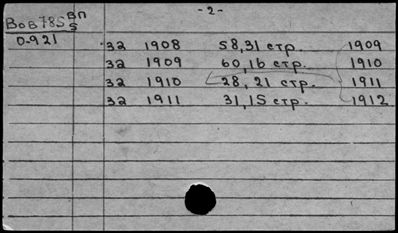 -2-
ВоВ785 ВП
5
0-921
32 1908 58,31 стр. 1909
32 1909 60,16 стр. 1910
32 1910 28, 21 стр. 1911
32 1911 31,15 стр. 1912